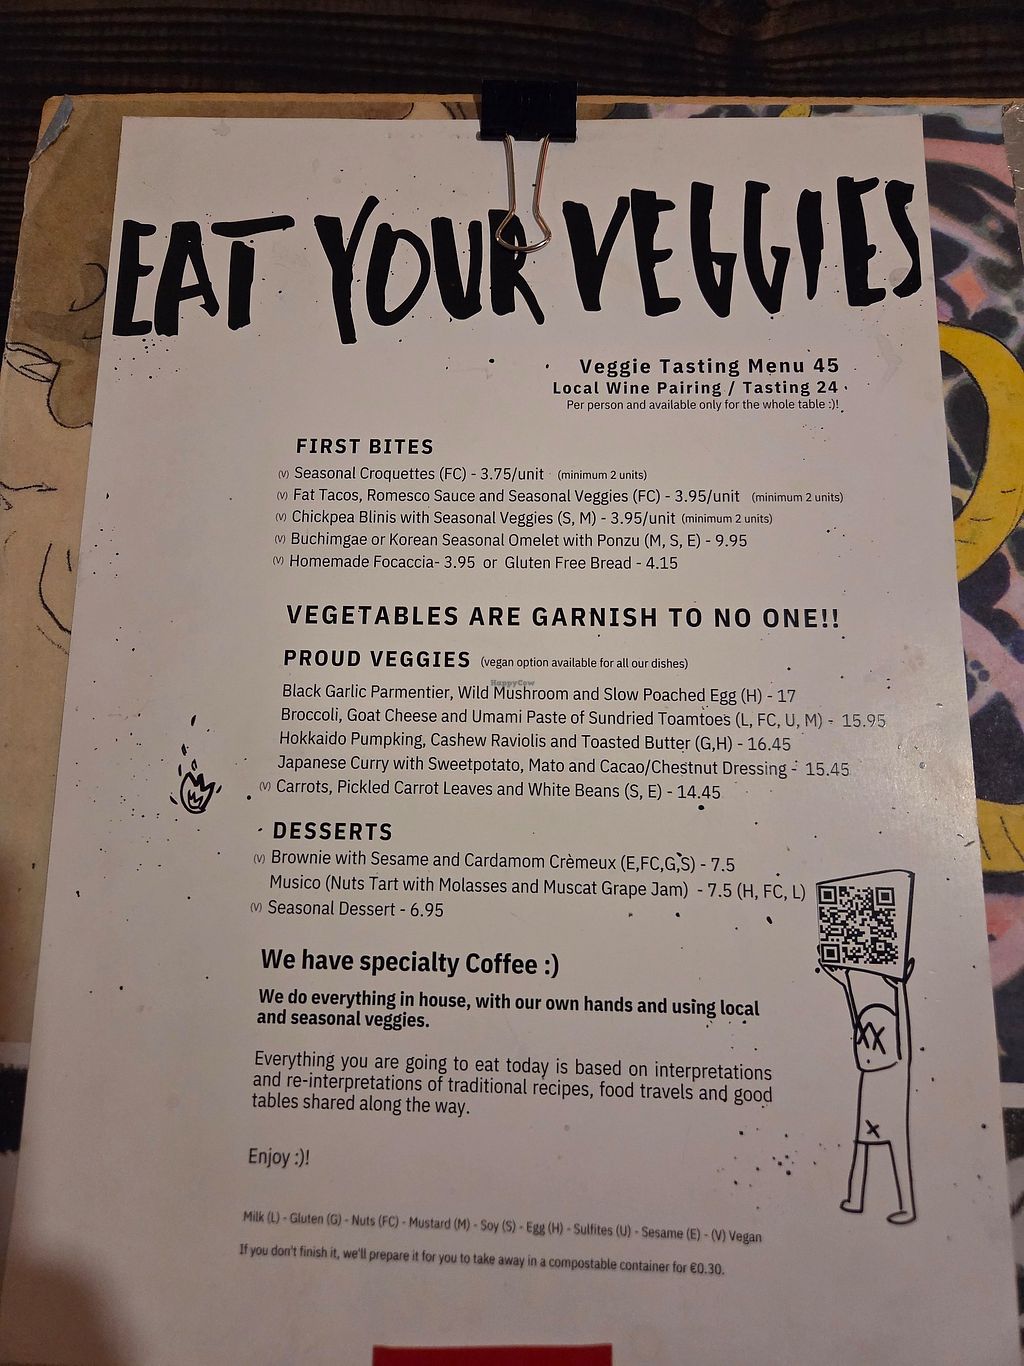 EAT YOUR VEGGIES
Veggie Tasting Menu 45
Local Wine Pairing / Tasting 24
Per person and available only for the whole table :)!
FIRST BITES
(V) Seasonal Croquettes (FC) - 3.75/unit (minimum 2 units)
(V) Fat Tacos, Romesco Sauce and Seasonal Veggies (FC) - 3.95/unit (minimum 2 units)
(V) Chickpea Blinis with Seasonal Veggies (S, M) - 3.95/unit (minimum 2 units)
(V) Buchimgae or Korean Seasonal Omelet with Ponzu (M, S, E) - 9.95
(V) Homemade Focaccia- 3.95 or Gluten Free Bread - 4.15
VEGETABLES ARE GARNISH TO NO ONE!!
PROUD VEGGIES (vegan option available for all our dishes)
HappyCow
Black Garlic Parmentier, Wild Mushroom and Slow Poached Egg (H) - 17
Broccoli, Goat Cheese and Umami Paste of Sundried Toamtoes (L, FC, U, M) - 15.95
Hokkaido Pumpking, Cashew Raviolis and Toasted Butter (G,H) - 16.45
Japanese Curry with Sweetpotato, Mato and Cacao/Chestnut Dressing - 15.45
(V) Carrots, Pickled Carrot Leaves and White Beans (S, E) - 14.45
DESSERTS
(V) Brownie with Sesame and Cardamom Crèmeux (E,FC,G,S) - 7.5
Musico (Nuts Tart with Molasses and Muscat Grape Jam) - 7.5 (H, FC, L)
(V) Seasonal Dessert - 6.95
We have specialty Coffee :)
We do everything in house, with our own hands and using local
and seasonal veggies.
Everything you are going to eat today is based on interpretations
and re-interpretations of traditional recipes, food travels and good
tables shared along the way.
Enjoy :)!
Milk (L) - Gluten (G) - Nuts (FC) - Mustard (M) - Soy (S) - Egg (H) - Sulfites (U) - Sesame (E) - (V) Vegan
If you don't finish it, we'll prepare it for you to take away in a compostable container for €0.30.